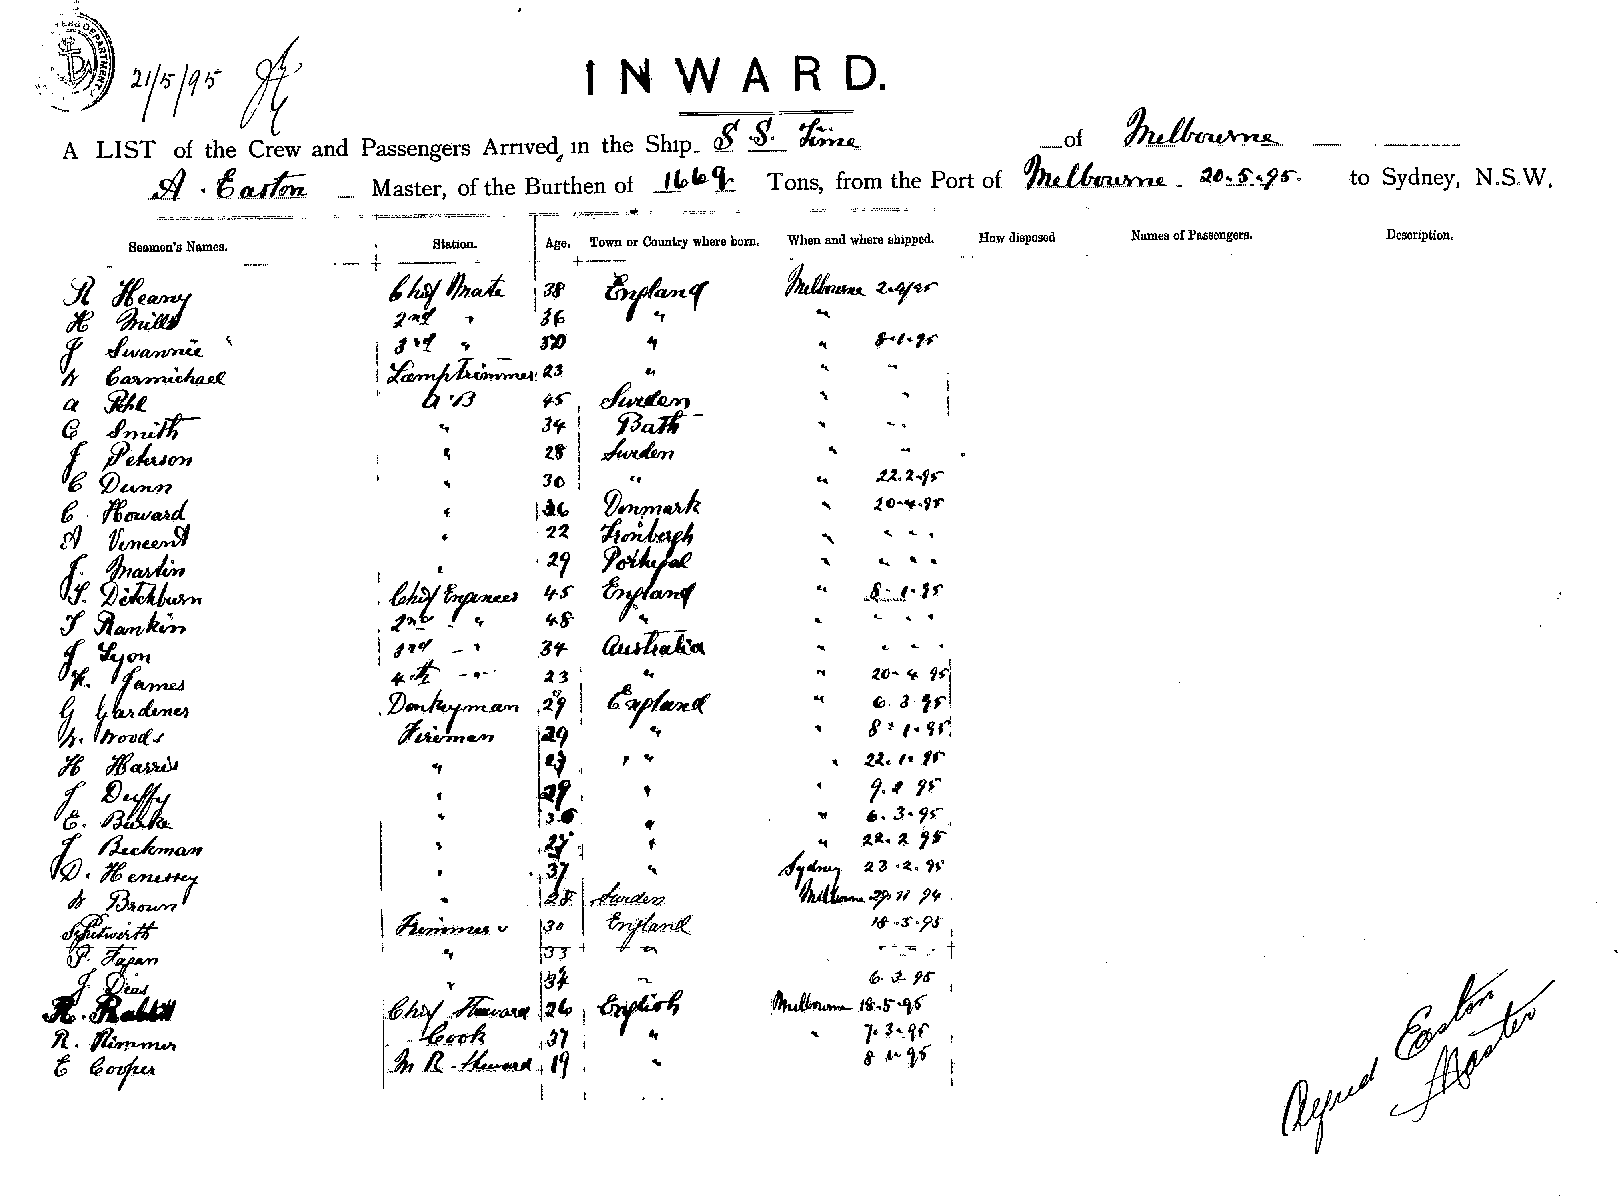 21/5/95
INWARD.
A LIST of the Crew and Passengers Arrived, in the Ship S S. Time of Melbourne
A. Easton Master, of the Burthen of 1669 Tons, from the Port of Melbourne 20.5.95. to Sydney, N.S.W.
Seamen's Names. Station. Age. Town or Country where born. When and where shipped. How disposed Names of Passengers. Description.
R Heany Chief Mate 38 England Melbourne
H Mills 2nd " 36 " "
J Swannie 3rd " " " 8.1.95
W Carmichael Lamptrimmer 23 " " "
A A.B 45 Sweden " "
C Smith " 34 Bath " "
J Peterson " 28 Sweden " "
C Dunn " 30 " " 22.2.95
C. Howard " 26 Denmark " 20.4.95
A Vincent " 22 " " " "
J. Martin " 29 Portugal " " " "
S. Ditchburn Chief Engineer 45 England " 8.1.95
T Rankin 2nd " 48 " " " " "
J Lyon 3rd " 34 Australia " " " "
H. James 4th " 23 " " 20.4.95
G Gardener Donkeyman 29 England " 6.3.95
W. Woods Fireman 29 " " 8.1.95
H Harris " 27 " " 22.1.95
J Duffy " 29 " " 9.2.95
E. Burke " " " 6.3.95
J Beckman " 27 " " 22.2.95
D. Henessey " 37 " Sydney 23.2.95
W Brown " 28 Sweden Melbourne 29.11.94
Trimmer " 30 England 18.5.95
P. Fagan " 33 " " " "
J Dias " " 6.3.95
R. Rabbitt Chief Steward 26 English Melbourne 18.5.95
R. Rimmer Cook 37 " " 7.3.95
E Cooper M R. Steward 19 " 8.1.95
Alfred Easton
Master